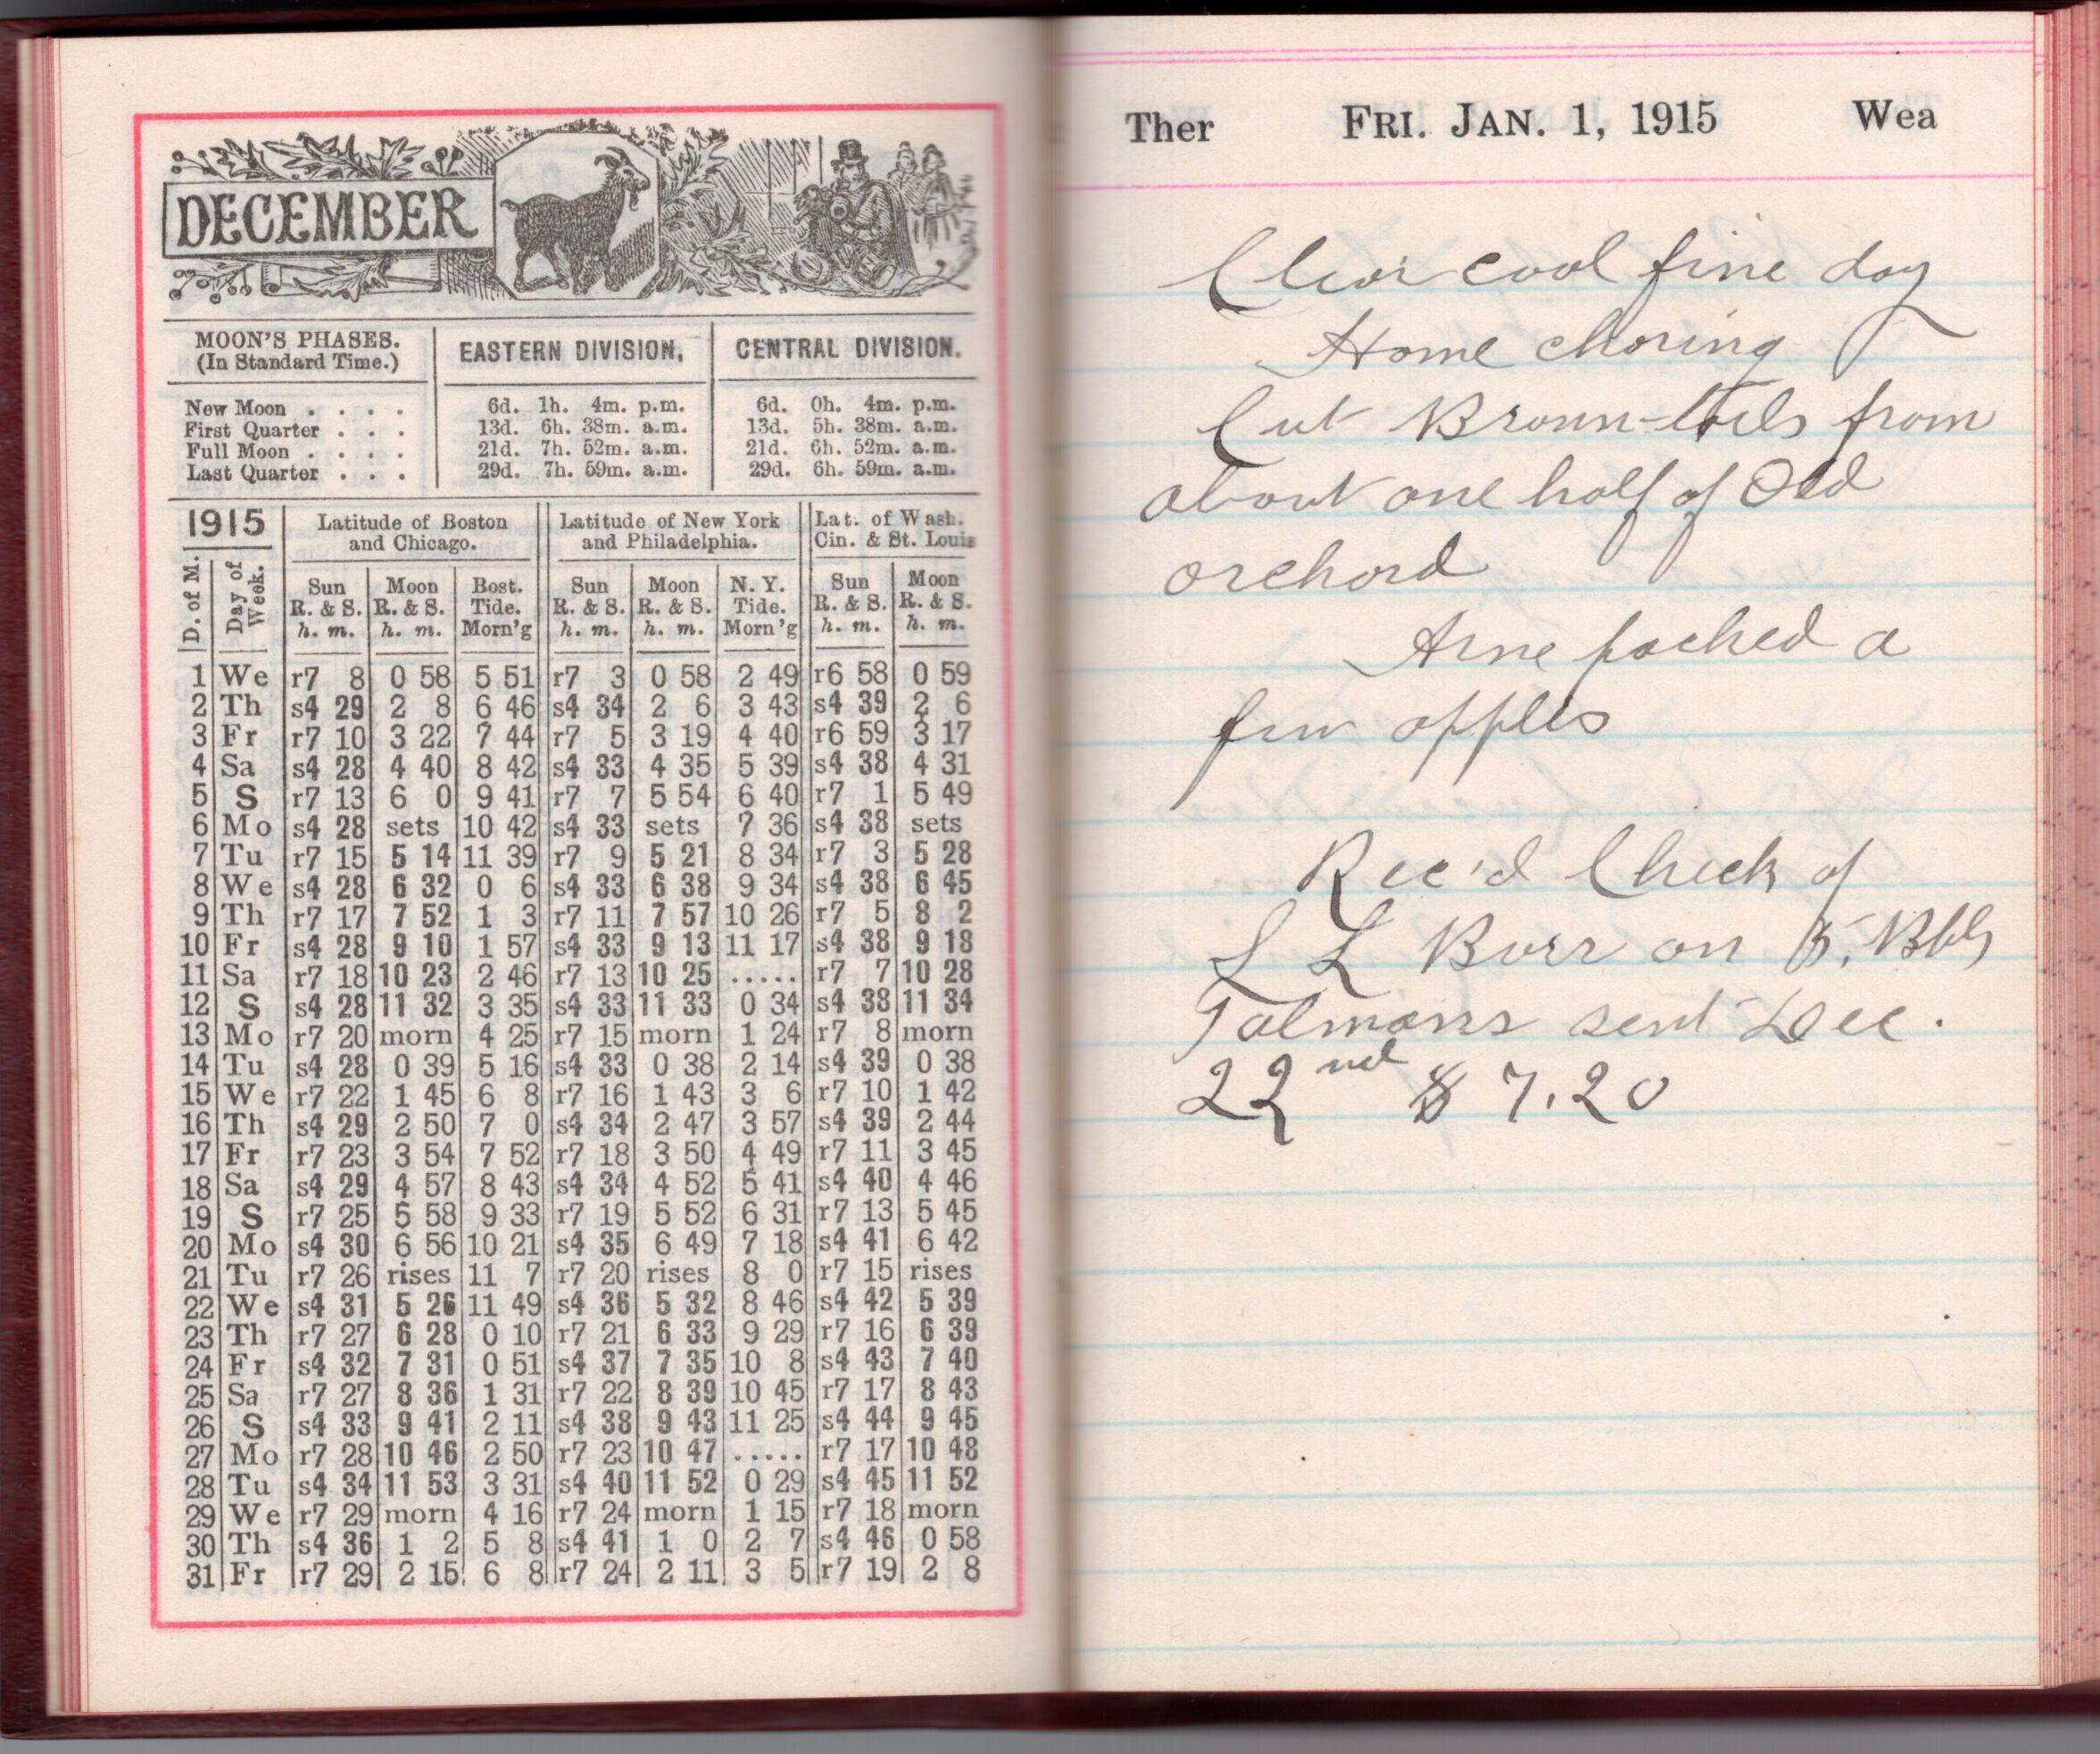 DECEMBER
MOON'S PHASES. (In Standard Time.) EASTERN DIVISION, CENTRAL DIVISION.
New Moon . . . . 6d. 1h. 4m. p.m. 6d. 0h. 4m. p.m.
First Quarter . . . 13d. 6h. 38m. a.m. 13d. 5h. 38m. a.m.
Full Moon . . . . 21d. 7h. 52m. a.m. 21d. 6h. 52m. a.m.
Last Quarter . . . 29d. 7h. 59m. a.m. 29d. 6h. 59m. a.m.
1915 Latitude of Boston and Chicago. Latitude of New York and Philadelphia. Lat. of Wash. Cin. & St. Louis
D. of M. Day of Week. Sun R. & S. h. m. Moon R. & S. h. m. Bost. Tide. Morn'g Sun R. & S. h. m. Moon R. & S. h. m. N. Y. Tide. Morn'g Sun R. & S. h. m. Moon R. & S. h. m.
1 We r7 8 0 58 5 51 r7 3 0 58 2 49 r6 58 0 59
2 Th s4 29 2 8 6 46 s4 34 2 6 3 43 s4 39 2 6
3 Fr r7 10 3 22 7 44 r7 5 3 19 4 40 r6 59 3 17
4 Sa s4 28 4 40 8 42 s4 33 4 35 5 39 s4 38 4 31
5 S r7 13 6 0 9 41 r7 7 5 54 6 40 r7 1 5 49
6 Mo s4 28 sets 10 42 s4 33 sets 7 36 s4 38 sets
7 Tu r7 15 5 14 11 39 r7 9 5 21 8 34 r7 3 5 28
8 We s4 28 6 32 0 6 s4 33 6 38 9 34 s4 38 6 45
9 Th r7 17 7 52 1 3 r7 11 7 57 10 26 r7 5 8 2
10 Fr s4 28 9 10 1 57 s4 33 9 13 11 17 s4 38 9 18
11 Sa r7 18 10 23 2 46 r7 13 10 25 ..... r7 7 10 28
12 S s4 28 11 32 3 35 s4 33 11 33 0 34 s4 38 11 34
13 Mo r7 20 morn 4 25 r7 15 morn 1 24 r7 8 morn
14 Tu s4 28 0 39 5 16 s4 33 0 38 2 14 s4 39 0 38
15 We r7 22 1 45 6 8 r7 16 1 43 3 6 r7 10 1 42
16 Th s4 29 2 50 7 0 s4 34 2 47 3 57 s4 39 2 44
17 Fr r7 23 3 54 7 52 r7 18 3 50 4 49 r7 11 3 45
18 Sa s4 29 4 57 8 43 s4 34 4 52 5 41 s4 40 4 46
19 S r7 25 5 58 9 33 r7 19 5 52 6 31 r7 13 5 45
20 Mo s4 30 6 56 10 21 s4 35 6 49 7 18 s4 41 6 42
21 Tu r7 26 rises 11 7 r7 20 rises 8 0 r7 15 rises
22 We s4 31 5 26 11 49 s4 36 5 32 8 46 s4 42 5 39
23 Th r7 27 6 28 0 10 r7 21 6 33 9 29 r7 16 6 39
24 Fr s4 32 7 31 0 51 s4 37 7 35 10 8 s4 43 7 40
25 Sa r7 27 8 36 1 31 r7 22 8 39 10 45 r7 17 8 43
26 S s4 33 9 41 2 11 s4 38 9 43 11 25 s4 44 9 45
27 Mo r7 28 10 46 2 50 r7 23 10 47 ..... r7 17 10 48
28 Tu s4 34 11 53 3 31 s4 40 11 52 0 29 s4 45 11 52
29 We r7 29 morn 4 16 r7 24 morn 1 15 r7 18 morn
30 Th s4 36 1 2 5 8 s4 41 1 0 2 7 s4 46 0 58
31 Fr r7 29 2 15 6 8 r7 24 2 11 3 5 r7 19 2 8
Ther FRI. JAN. 1, 1915 Wea
Clear cool fine day
Home choring
Cut Brown-tails from
about one half of Old
orchard
Arne packed a
few apples
Rec'd Check of
L L Burr on 5, Bbls
Talmans sent Dec.
22nd $7.20